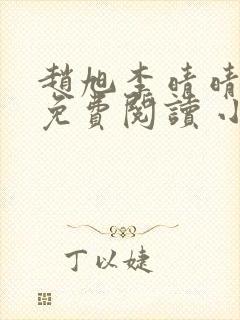 趙旭李晴晴
免費閱讀小
丁以婕